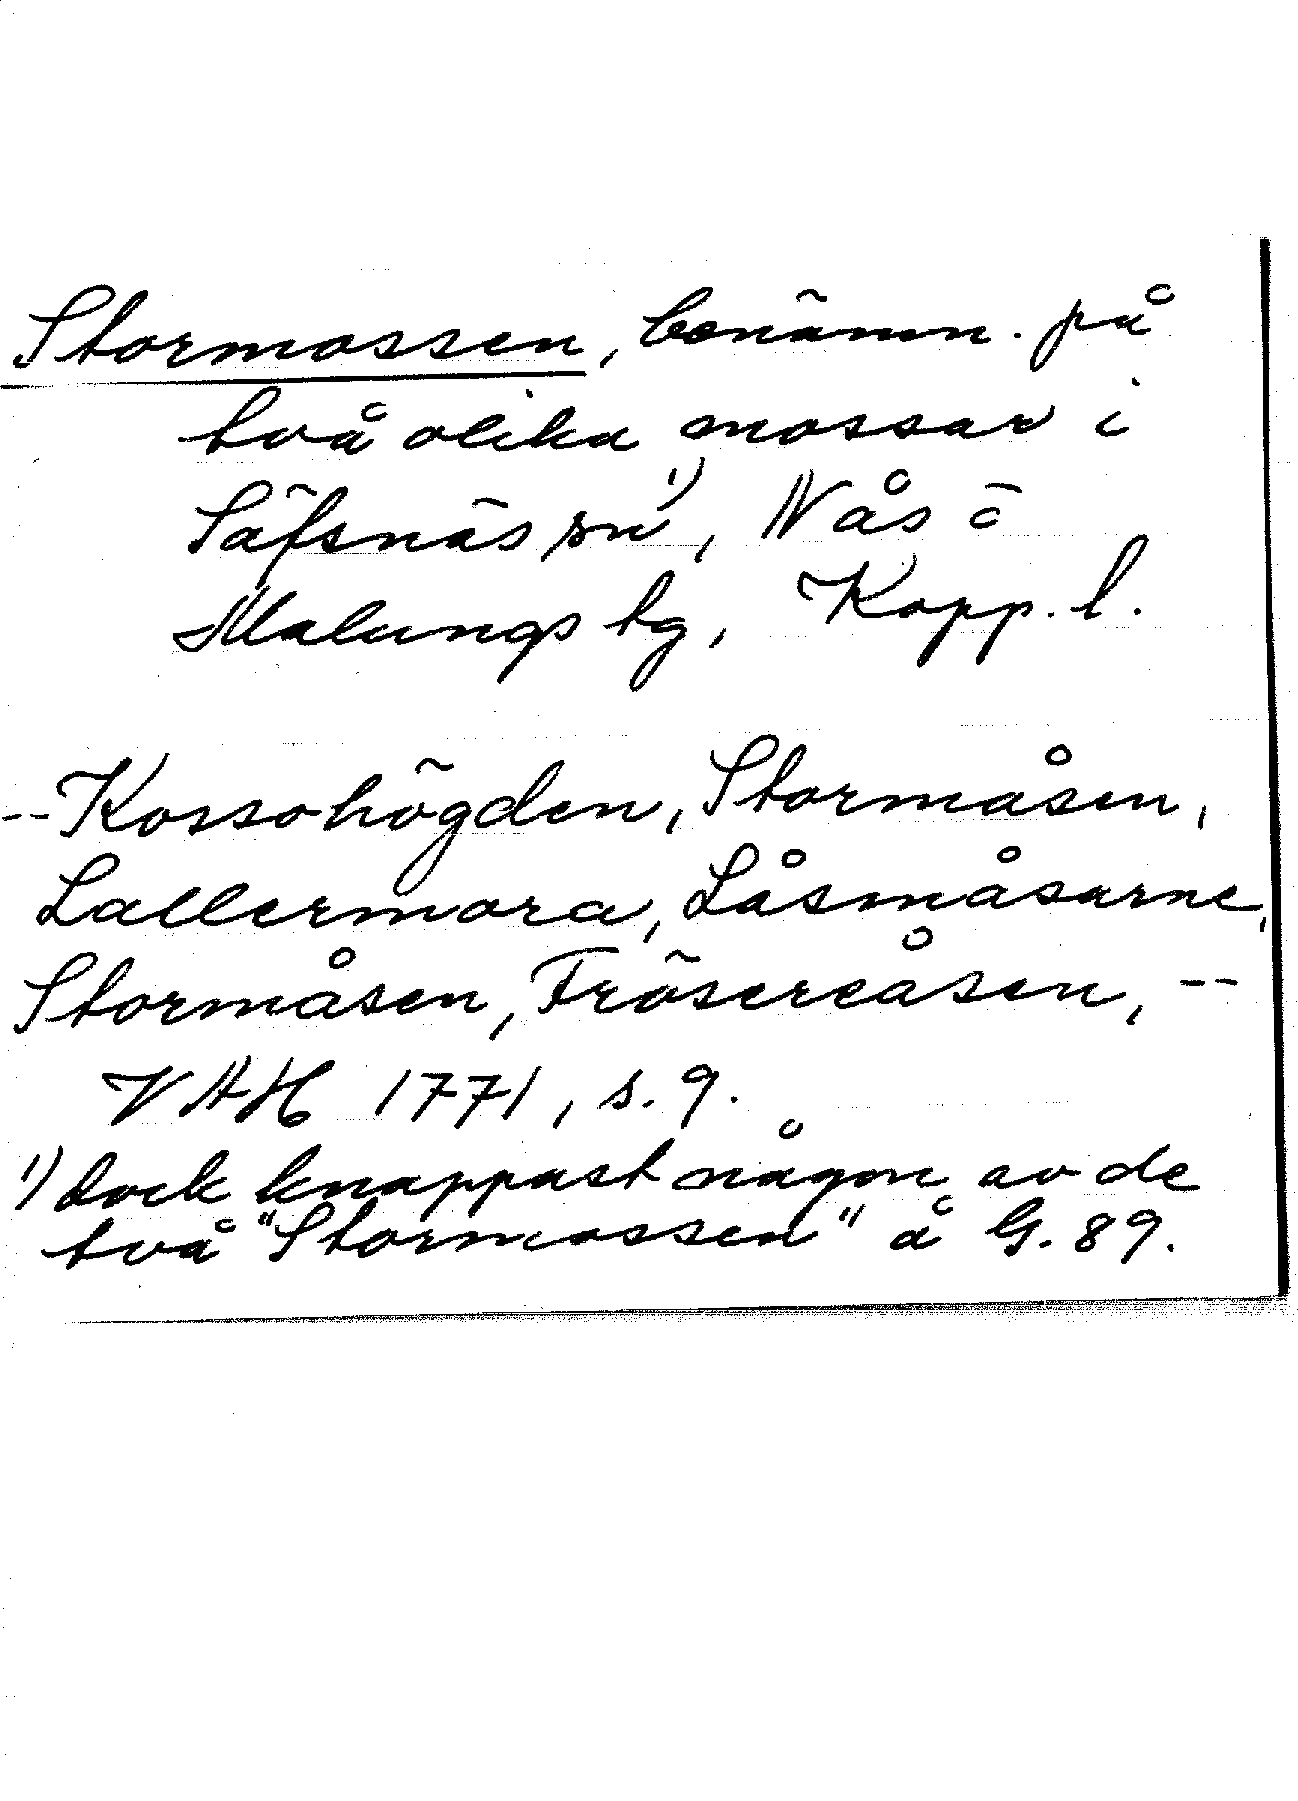 Stormossen, benämn. på
två olika mossar i
Säfsnäs sn¹⁾, Nås o
Malungs tg, Kopp. l.
--Kossohögden, Stormåsen,
Lallermora, Låsmåsarne,
Stormåsen, Frösereåsen, --
VAH 1771, s. 9.
1) dock knappast någon av de
två "Stormossen" å G. 89.